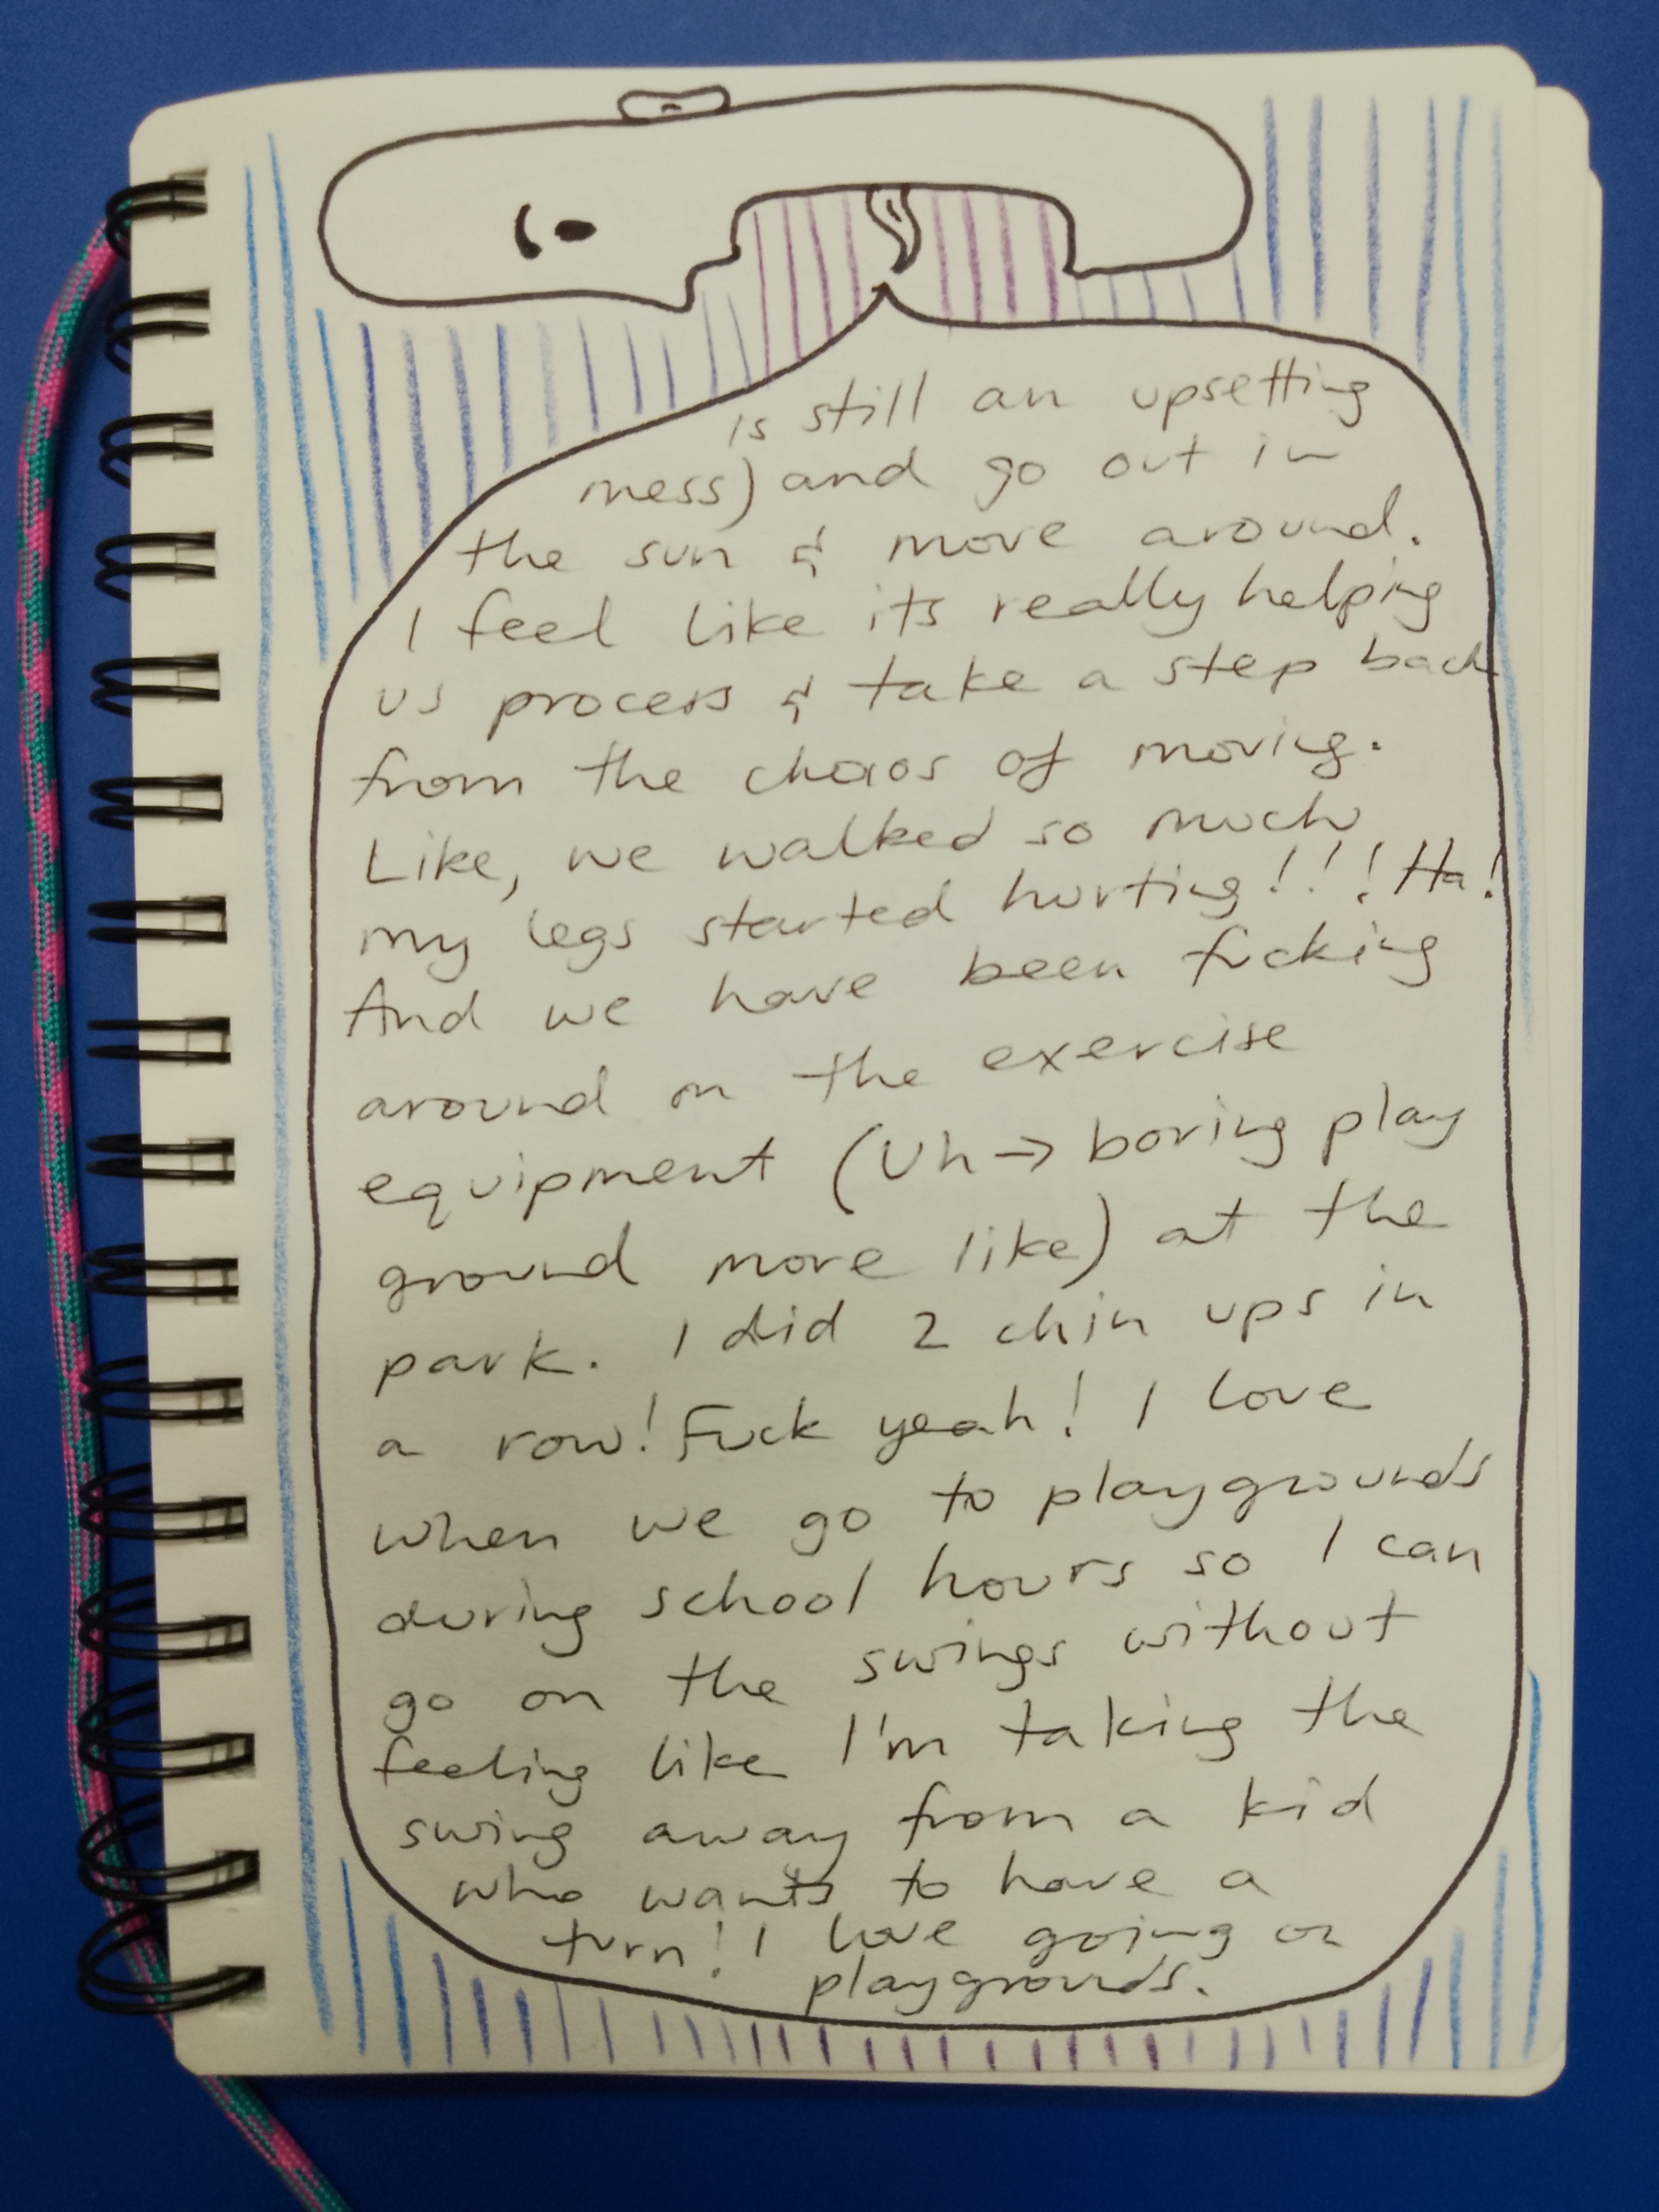 is still an upsetting
mess) and go out in
the sun & move around.
I feel like its really helping
us process & take a step back
from the chaos of moving.
Like, we walked so much
my legs started hurting!!! Ha!
And we have been fucking
around on the exercise
equipment (Uh → boring play
ground more like) at the
park. I did 2 chin ups in
a row! Fuck yeah! I love
when we go to playgrounds
during school hours so I can
go on the swings without
feeling like I'm taking the
swing away from a kid
who wants to have a
turn! I love going on
playgrounds.